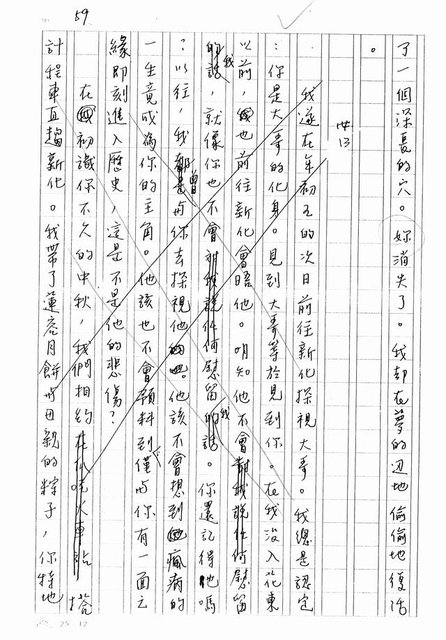 59
了一個深長的穴。妳消失了。我卻在夢的邊地偷偷地復活
。
13
我遂在年初五的次日前往新化探視大哥。我總是認定
:你是大哥的化身。見到大哥等於見到你。在我沒入花東
以前,我也前往新化會晤他。明知他不會對我說任何慰留
的話,就像你也不會對我說任何慰留的話。你還記得嗎
?以往,我曾與你去探視他。他該不會想到他瘋病的
一生竟成為你的主角。他該也不會預料到僅與你有一面之
緣即刻進入歷史,這是不是他的悲傷?
在初識你不久的中秋,我們相約在火車站搭
計程車直趨新化。我帶了蓮蓉月餅與母親的粽子,你特地